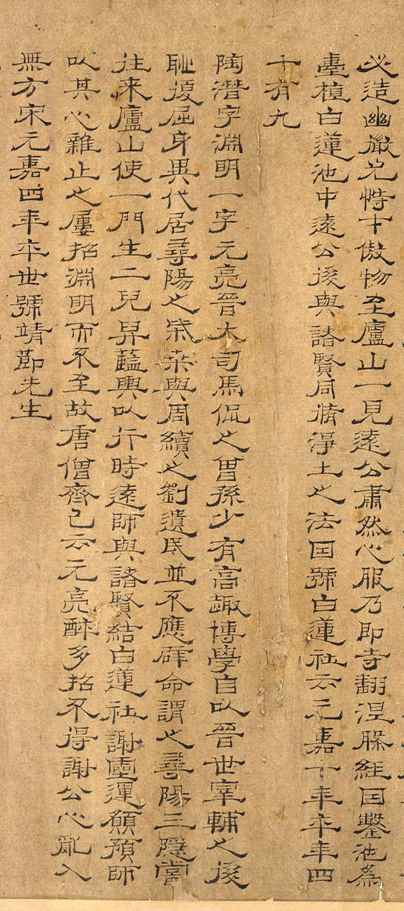 必造幽微尤恃才傲物至廬山一見遠公肅然心服乃即寺翻涅槃經因鑿池為
臺植白蓮池中遠公後與諸賢同脩淨土之法因號白蓮社云元嘉十年卒年四
十有九
陶潛字淵明一字元亮晉大司馬侃之曾孫少有高趣博學自以晉世宰輔之後
恥復屈身異代居尋陽之柴桒與周續之劉遺民並不應辟命謂之尋陽三隱嘗
往来廬山使一門生二兒舁藍輿以行時遠師與諸賢結白蓮社謝靈運願預師
以其心雜止之屢招淵明而不至故唐僧齊己云元亮醉多招不得謝公心亂入
無方宋元嘉四年卒世號靖節先生